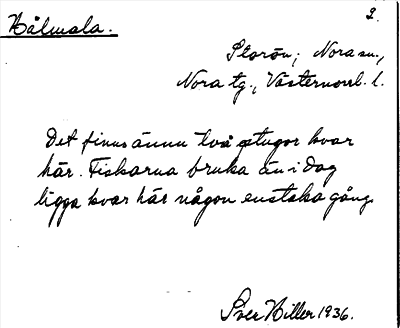 Hålmala.
2.
Storön; Nora sn.,
Nora tg., Västernorrl. l.
Det finns ännu två stugor kvar
här. Fiskarna bruka än i dag
ligga kvar här någon enstaka gång.
Hiller 1936.